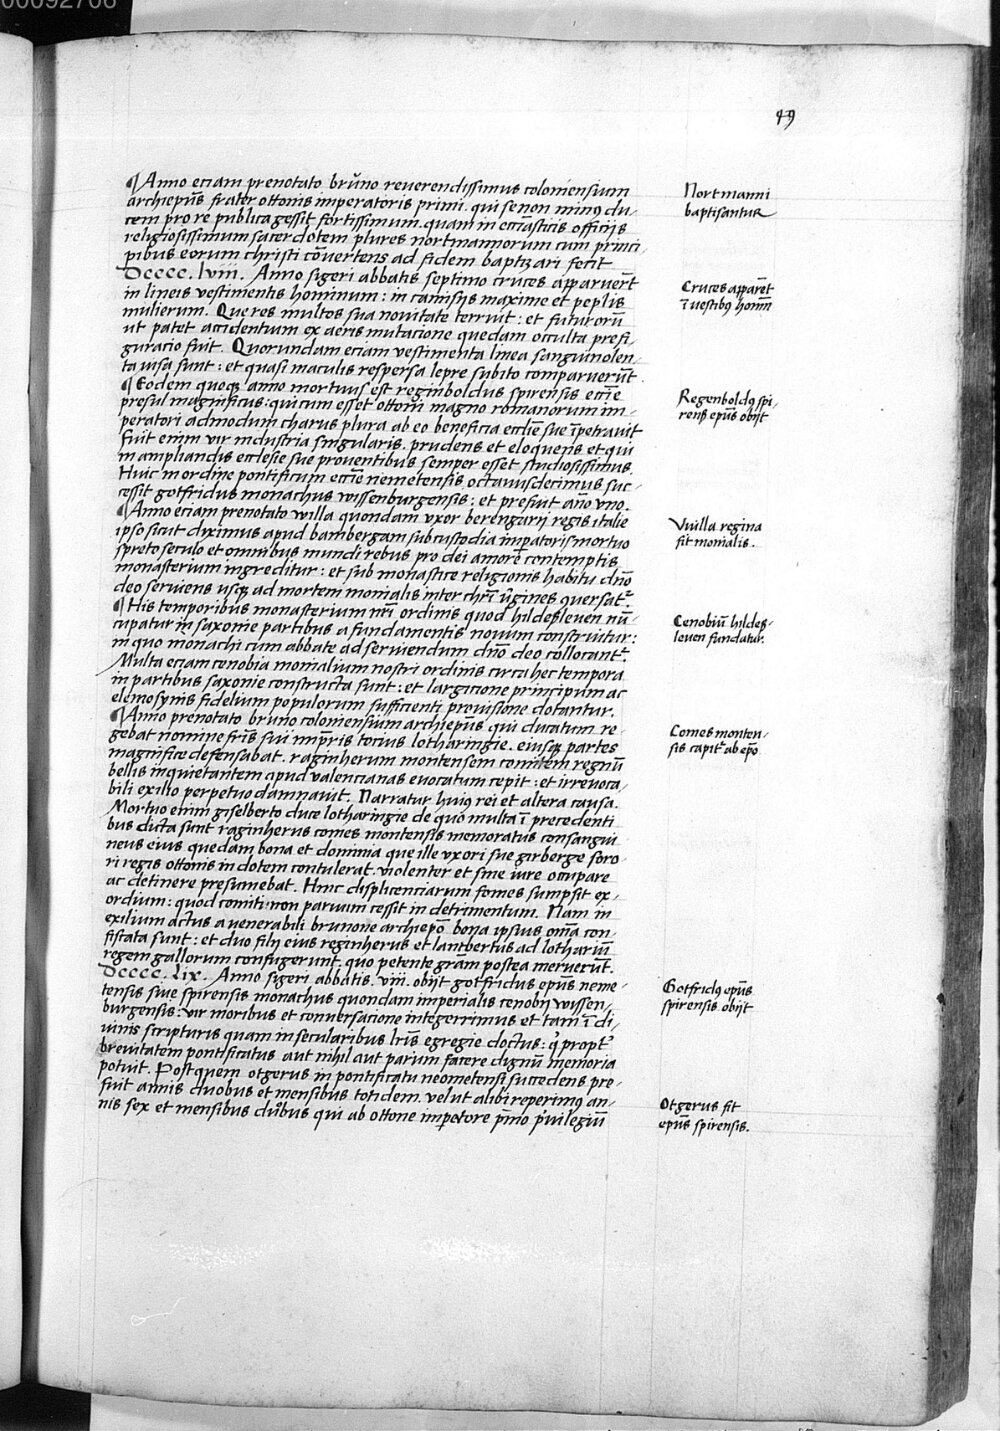 00092706
49
¶ Anno eciam prenotato bruno reuerendissimus coloniensium
archiep̄us frater ottonis imperatoris primi. qui se non minus du-
cem pro re publica gessit fortissimum. quam in eccīasticis officijs
religiosissimum sacerdotem plures nortmannorum cum princi-
pibus eorum christi cōuertens ad fidem baptizari fecit
Dcccc. lviii. Anno sigeri abbatis septimo cruces apparuer̄t
in lineis vestimentis hominum: in camisijs maxime et peplis
mulierum. Que res multos sua nouitate terruit: et futurorū
ut patet accidentium ex aeris mutacione quedam occulta prefi-
guracio fuit. Quorundam eciam vestimenta linea sanguinolen-
ta uisa sunt: et quasi maculis respersa lepre subito comparuerūt.
¶ Eodem quoqꝫ anno mortuus est reginboldus spirensis eccīe
presul magnificus: qui cum esset ottoni magno romanorum im-
peratori admodum charus plura ab eo beneficia ecclīe sue īpetrauit
Fuit enim vir industria singularis. prudens et eloquens et qui
in ampliandis ecclesie sue prouentibus semper esset studiosissimus.
Huic in ordine pontificum eccīe nemetensis octauusdecimus suc-
cessit gotfridus monachus wissenburgensis: et prefuit ān̄o vno.
¶ Anno eciam prenotato willa quondam vxor berengarij regis italie
ipso sicut diximus apud bambergam sub custodia imp̄atoris mortuo
spreto seculo et omnibus mundi rebus pro dei amore contemptis
monasterium ingreditur: et sub monastice religionis habitu dn̄o
deo seruiens usqꝫ ad mortem monialis inter chr̄i v̄gines ꝯuersat᷑.
¶ His temporibus monasterium nr̄i ordinis quod hildesleuen nū-
cupatur in saxonie partibus a fundamentis nouum construitur:
in quo monachi cum abbate ad seruiendum dn̄o deo collocant᷑.
Multa eciam cenobia monialium nostri ordinis circa hec tempora
in partibus saxonie constructa sunt: et largicione principum ac
elemosynis fidelium populorum sufficienti prouisione dotantur.
¶ Anno prenotato bruno coloniensium archiep̄us qui ducatum re-
gebat nomine fr̄is sui imp̄ris tocius lotharingie. eiusqꝫ partes
magnifice defensabat. raginherum montensem comitem regnū
bellis inquietantem apud valencianas euocatum cepit: et irreuoca-
bili exilio perpetuo damnauit. Narratur huiꝰ rei et altera causa.
Mortuo enim giselberto duce lotharingie de quo multa ī precedenti
bus dicta sunt raginherus comes montensis memoratus consangui
neus eius quedam bona et dominia que ille vxori sue girberge soro-
ri regis ottonis in dotem contulerat. violenter et sine iure occupare
ac detinere presumebat. Hinc displicenciarum fomes sumpsit ex-
ordium: quod comiti non paruum cessit in detrimentum. Nam in
exilium actus a venerabili brunone archiep̄o bona ipsius om̄ia con-
fiscata sunt: et duo filij eius reginherus et lantbertus ad lothariū
regem gallorum confugerunt. quo petente gr̄am postea meruerūt.
Dcccc. Lix. Anno sigeri abbatis. viii. obijt gotfridus ep̄us neme-
tensis siue spirensis monachus quondam imperialis cenobij wissen-
burgensis: vir moribus et conuersacione integerrimus et tam ī di-
uinis scripturis quam in secularibus lr̄is egregie doctus: q̄ propt᷑
breuitatem pontificatus aut nihil aut parum facere dignū memoria
potuit. Post quem otgerus in pontificatu neometensi succedens pre-
fuit annis duobus et mensibus totidem. velut alibi reperimꝰ an-
nis sex et mensibus duobus qui ab ottone imperatore p̄mo p̄uilegiū
Nortmanni
baptisantur
Cruces apparēt
ī vestibꝰ homīn
Regenboldꝰ spi-
rensis ep̄us obijt
Vuilla regina
fit monialis.
Cenobiū hildes-
leuen fundatur.
Comes monten-
sis capit᷑ ab ep̄o
Gotfridꝰ ep̄us
spirensis obijt
Otgerus fit
ep̄us spirensis.